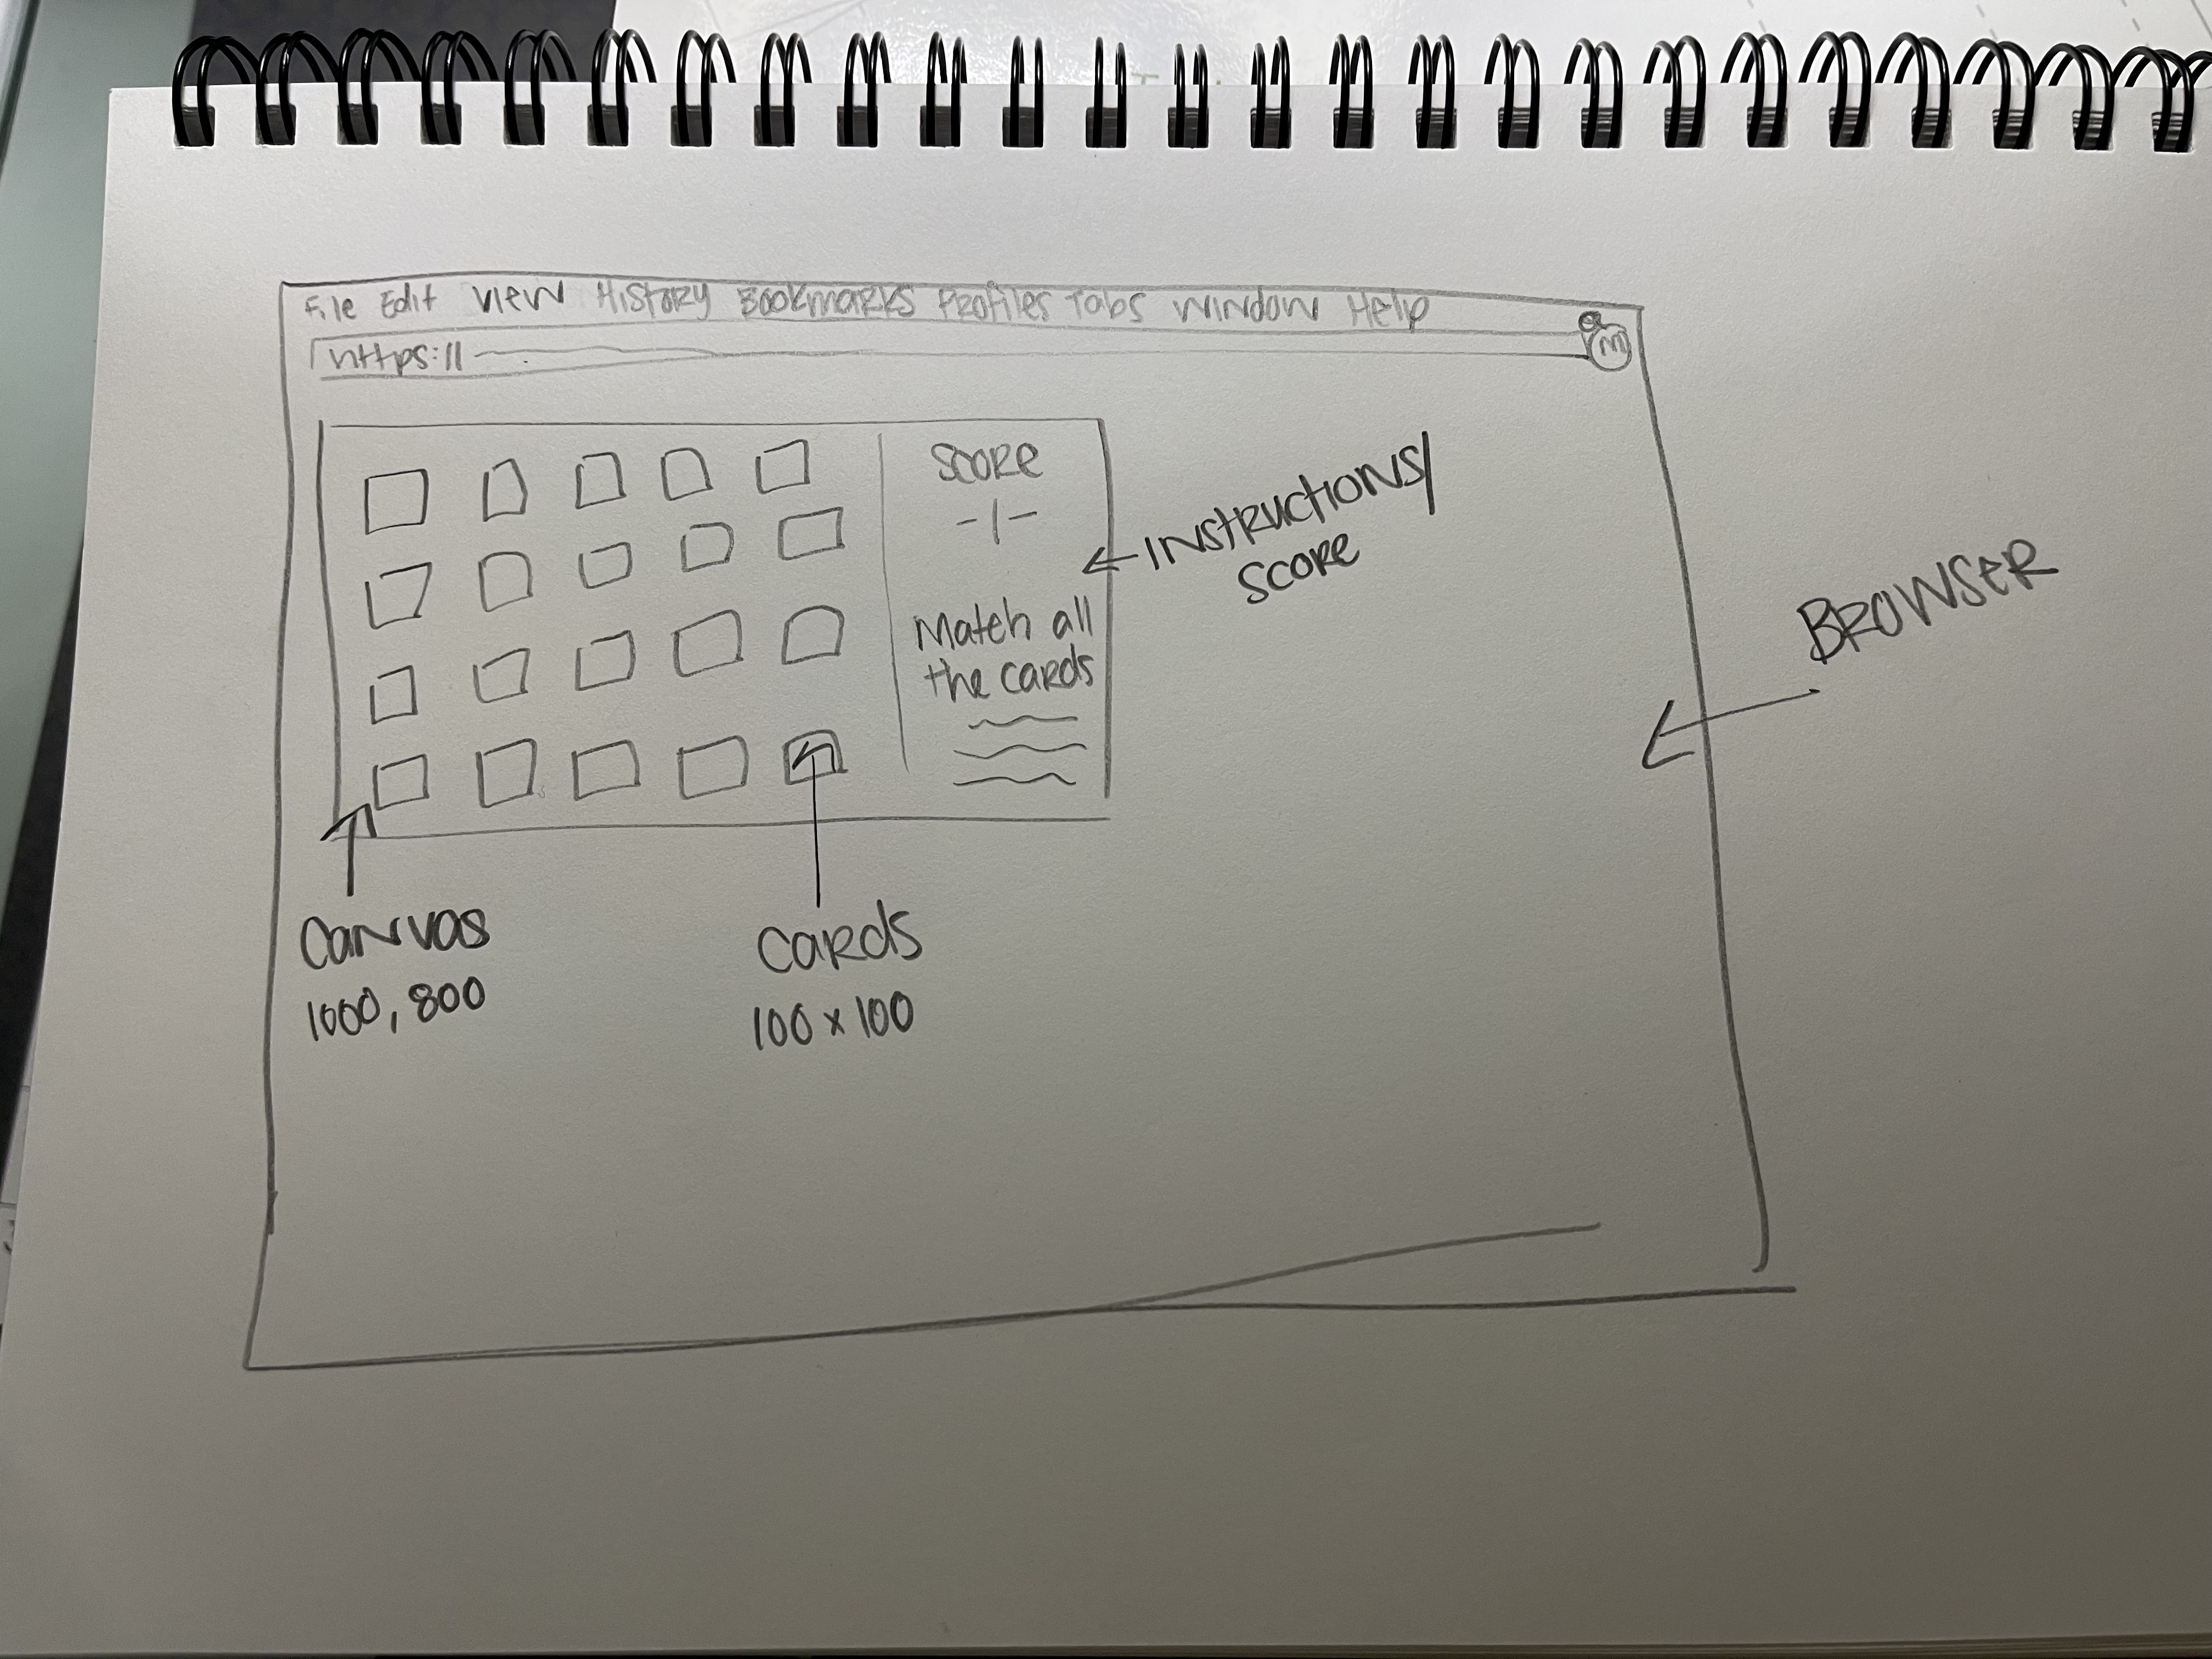 File Edit View History Bookmarks Profiles Tabs Window Help
https://
M
Score
-/-
Match all
the cards
Instructions/
Score
Browser
Canvas
1000, 800
Cards
100 x 100